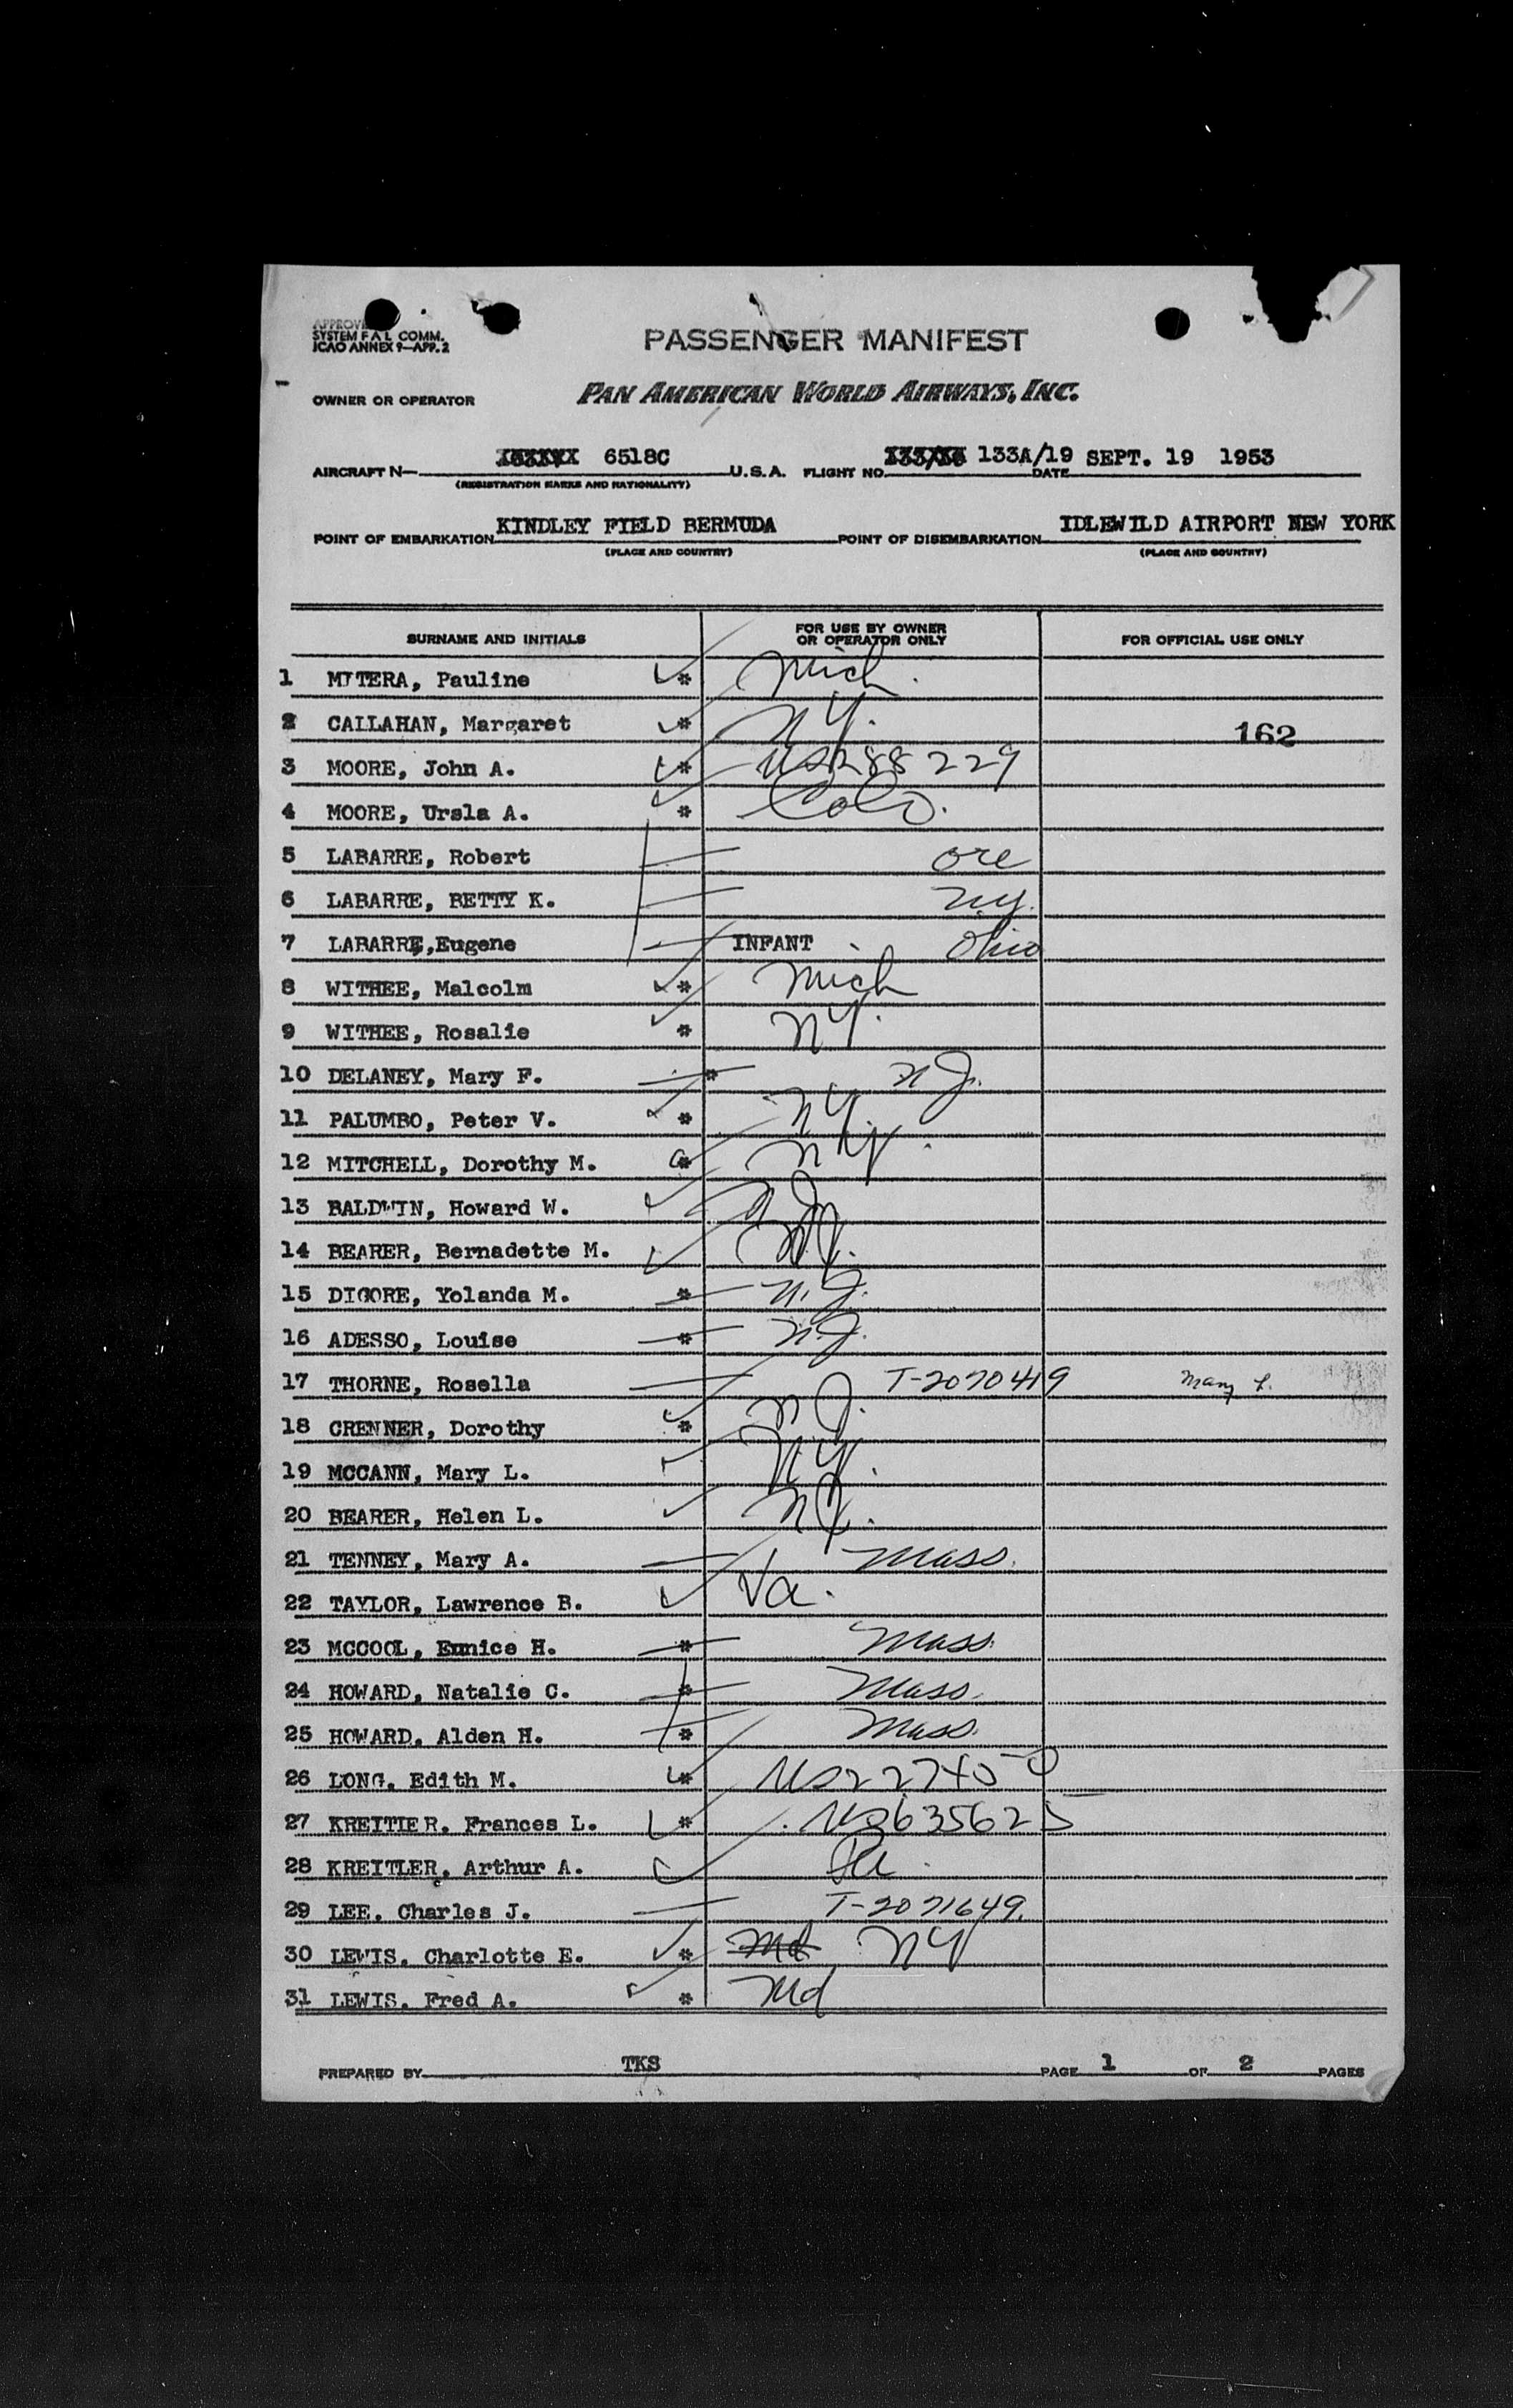 SYSTEM F A L COMM.
ICAO ANNEX 9—APP. 2
PASSENGER MANIFEST
OWNER OR OPERATOR PAN AMERICAN WORLD AIRWAYS, INC.
AIRCRAFT N— 6518C U.S.A. FLIGHT NO. 133A/19 DATE SEPT. 19 1953
(REGISTRATION MARKS AND NATIONALITY)
POINT OF EMBARKATION KINDLEY FIELD BERMUDA POINT OF DISEMBARKATION IDLEWILD AIRPORT NEW YORK
(PLACE AND COUNTRY) (PLACE AND COUNTRY)
SURNAME AND INITIALS FOR USE BY OWNER OR OPERATOR ONLY FOR OFFICIAL USE ONLY
1 MITERA, Pauline * Mich.
2 CALLAHAN, Margaret * NY. 162
3 MOORE, John A. * 88229
4 MOORE, Ursla A. * Colo.
5 LABARRE, Robert Ore
6 LABARRE, BETTY K. N.Y.
7 LABARRE,Eugene INFANT Ohio
8 WITHEE, Malcolm * Mich
9 WITHEE, Rosalie * NY.
10 DELANEY, Mary F. * NJ.
11 PALUMBO, Peter V. * NY.
12 MITCHELL, Dorothy M. * NY.
13 BALDWIN, Howard W.
14 BEARER, Bernadette M.
15 DIGORE, Yolanda M. * N.J.
16 ADESSO, Louise * N.J.
17 THORNE, Rosella T-2070419 Mary L.
18 CRENNER, Dorothy * NJ.
19 MCCANN, Mary L. NY.
20 BEARER, Helen L.
21 TENNEY, Mary A. Mass.
22 TAYLOR, Lawrence B. Va.
23 MCCOOL, Eunice H. * Mass.
24 HOWARD, Natalie C. * Mass.
25 HOWARD. Alden H. * Mass.
26 LONG. Edith M. *
27 KREITLER. Frances L. * 635625
28 KREITLER. Arthur A. Pa.
29 LEE. Charles J. T-2071649.
30 LEWIS. Charlotte E. * Md NY
31 LEWIS. Fred A. * Md
PREPARED BY TKS PAGE 1 OF 2 PAGES